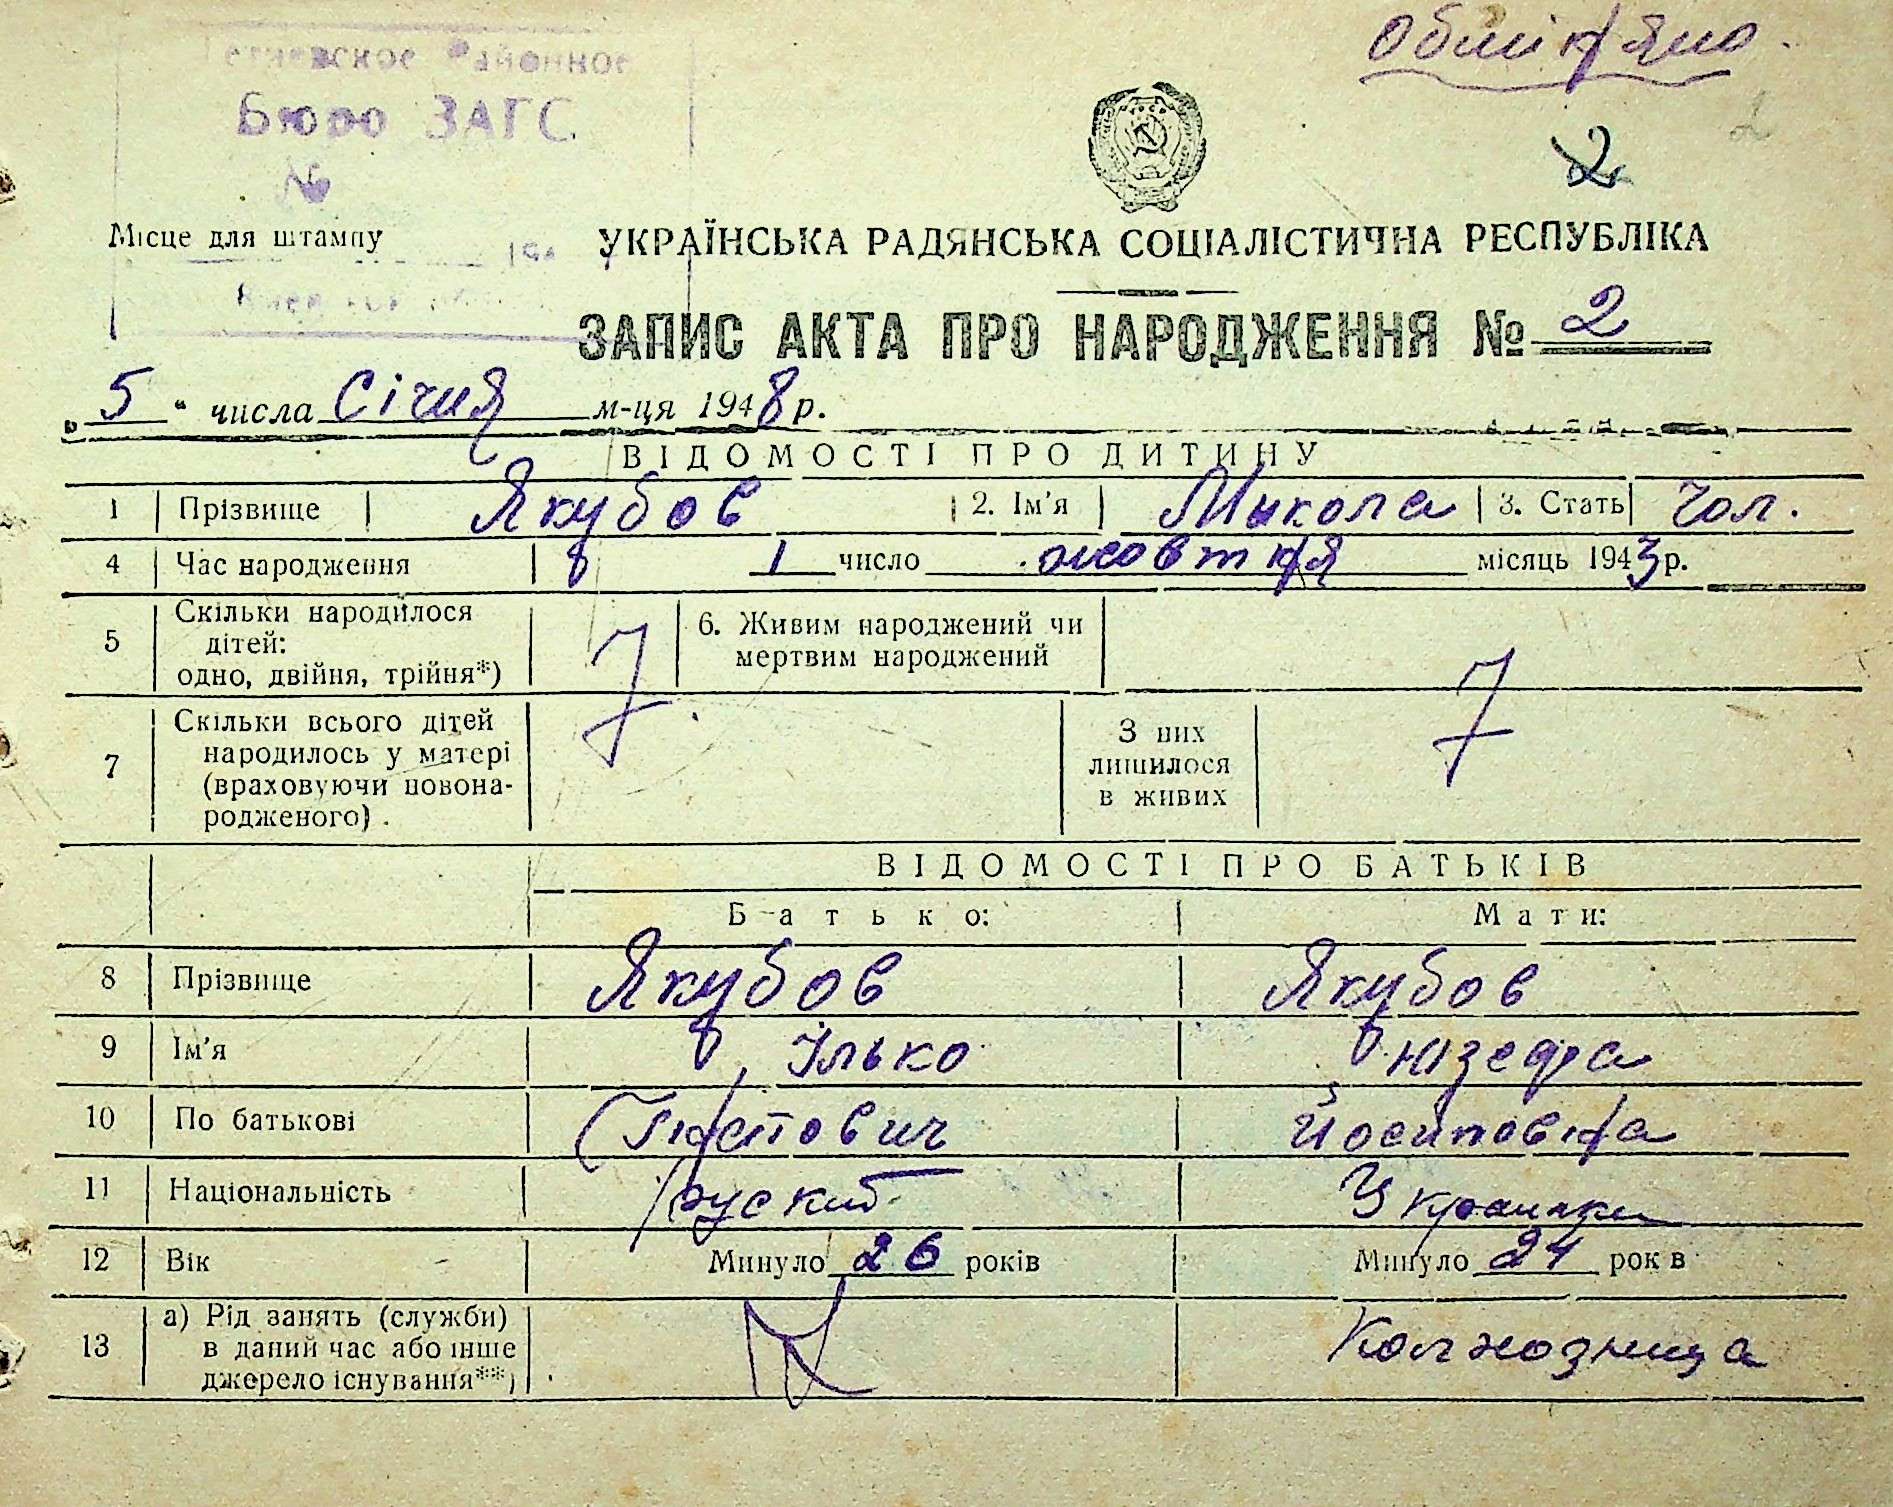 Районное
Бюро ЗАГС
№
2
Місце для штампу
УКРАЇНСЬКА РАДЯНСЬКА СОЦІАЛІСТИЧНА РЕСПУБЛІКА
ЗАПИС АКТА ПРО НАРОДЖЕННЯ № 2
„ 5 “ числа Січня м-ця 1948 р.
ВІДОМОСТІ ПРО ДИТИНУ
1 Прізвище Якубов 2. Ім'я Микола 3. Стать Чол.
4 Час народження 1 число жовтня місяць 1943 р.
5 Скільки народилося
дітей:
одно, двійня, трійня*)
6. Живим народжений чи
мертвим народжений
7 Скільки всього дітей
народилось у матері
(враховуючи новона-
родженого).
З них
лишилося
в живих
ВІДОМОСТІ ПРО БАТЬКІВ
Батько: Мати:
8 Прізвище Якубов Якубов
9 Ім'я Ілько Юзефа
10 По батькові Йосиповна
11 Національність руский Украинка
12 Вік Минуло 26 років Минуло 24 рок в
13 а) Рід занять (служби)
в даний час або інше
джерело існування**)
Колхозница